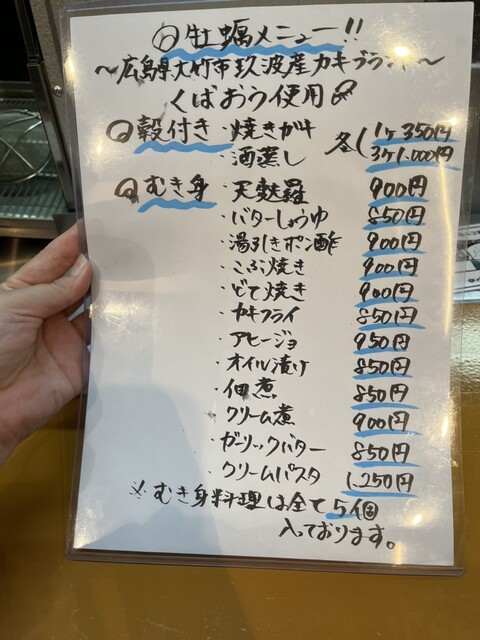 牡蠣メニュー!!
〜広島県大竹市玖波産カキブランド〜
くばおう使用
殻付き・焼きガキ 各(1ヶ350円
・酒蒸し 3ヶ1.000円
むき身・天麩羅 900円
・バターしょうゆ 850円
・湯引きポン酢 900円
・こぶ焼き 900円
・どて焼き 900円
・カキフライ 850円
・アヒージョ 950円
・オイル漬け 850円
・佃煮 850円
・クリーム煮 900円
・ガーリックバター 850円
・クリームパスタ 1.250円
※むき身料理は全て5個
入っております。